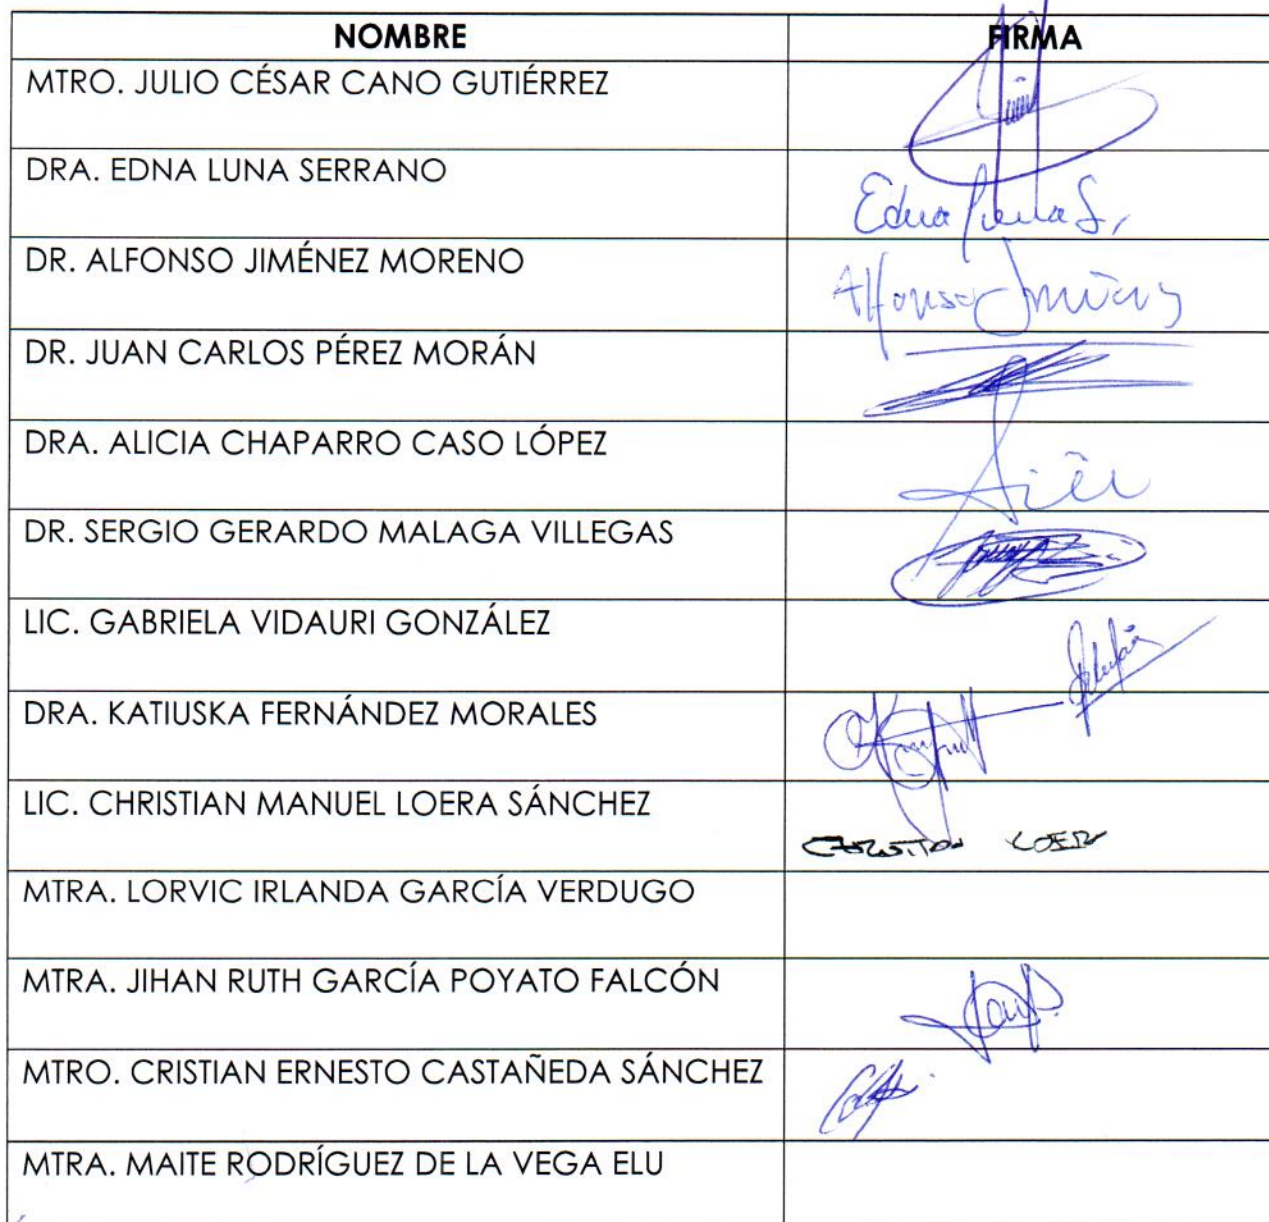 NOMBRE FIRMA
MTRO. JULIO CÉSAR CANO GUTIÉRREZ
DRA. EDNA LUNA SERRANO
Edna Luna S.
DR. ALFONSO JIMÉNEZ MORENO
Alfonso Jiménez
DR. JUAN CARLOS PÉREZ MORÁN
DRA. ALICIA CHAPARRO CASO LÓPEZ
DR. SERGIO GERARDO MALAGA VILLEGAS
LIC. GABRIELA VIDAURI GONZÁLEZ
DRA. KATIUSKA FERNÁNDEZ MORALES
LIC. CHRISTIAN MANUEL LOERA SÁNCHEZ
CHRISTIAN LOERA
MTRA. LORVIC IRLANDA GARCÍA VERDUGO
MTRA. JIHAN RUTH GARCÍA POYATO FALCÓN
MTRO. CRISTIAN ERNESTO CASTAÑEDA SÁNCHEZ
MTRA. MAITE RODRÍGUEZ DE LA VEGA ELU